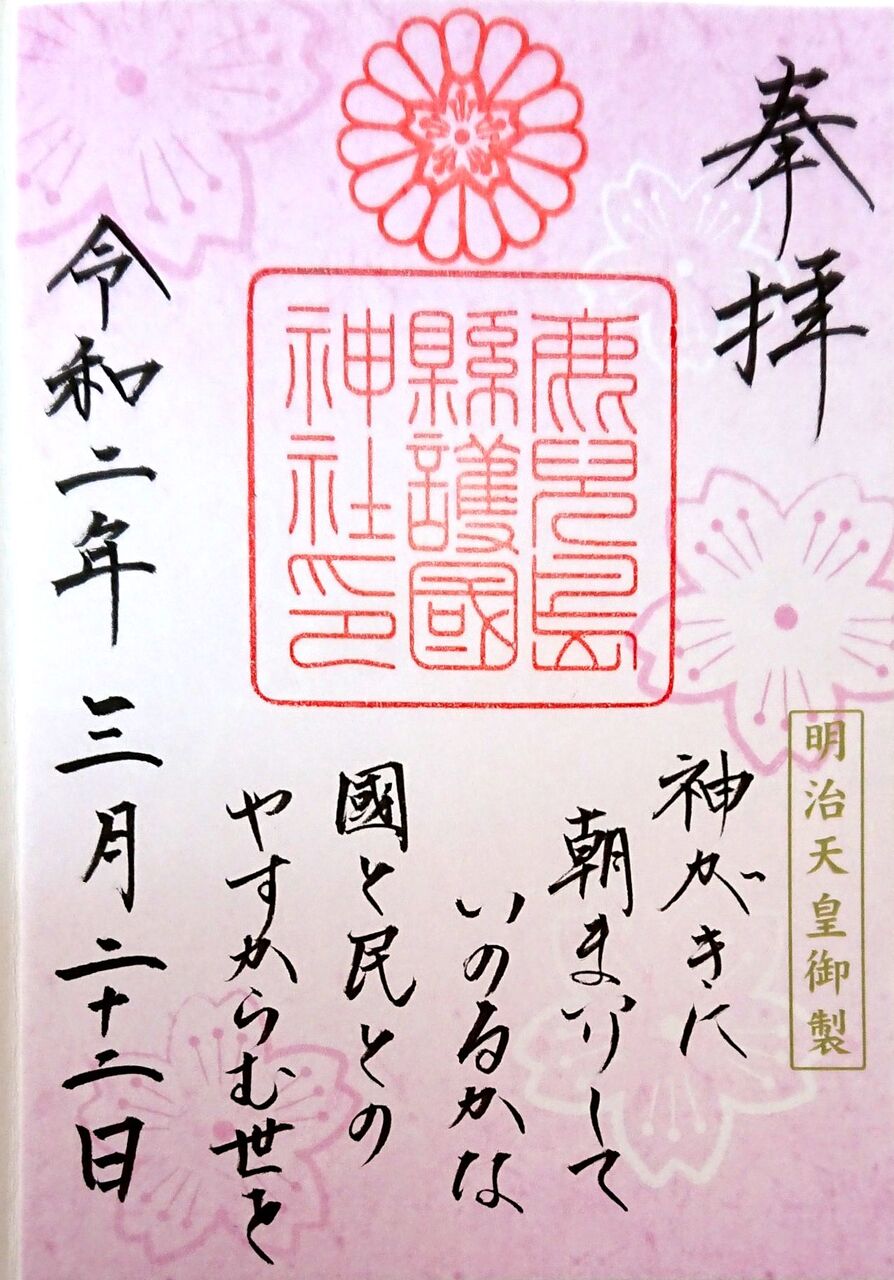 奉拝
鹿兒島
縣護國
神社印
明治天皇御製
神がきに
朝まいりして
いのるかな
國と民との
やすからむ世を
令和二年三月二十二日